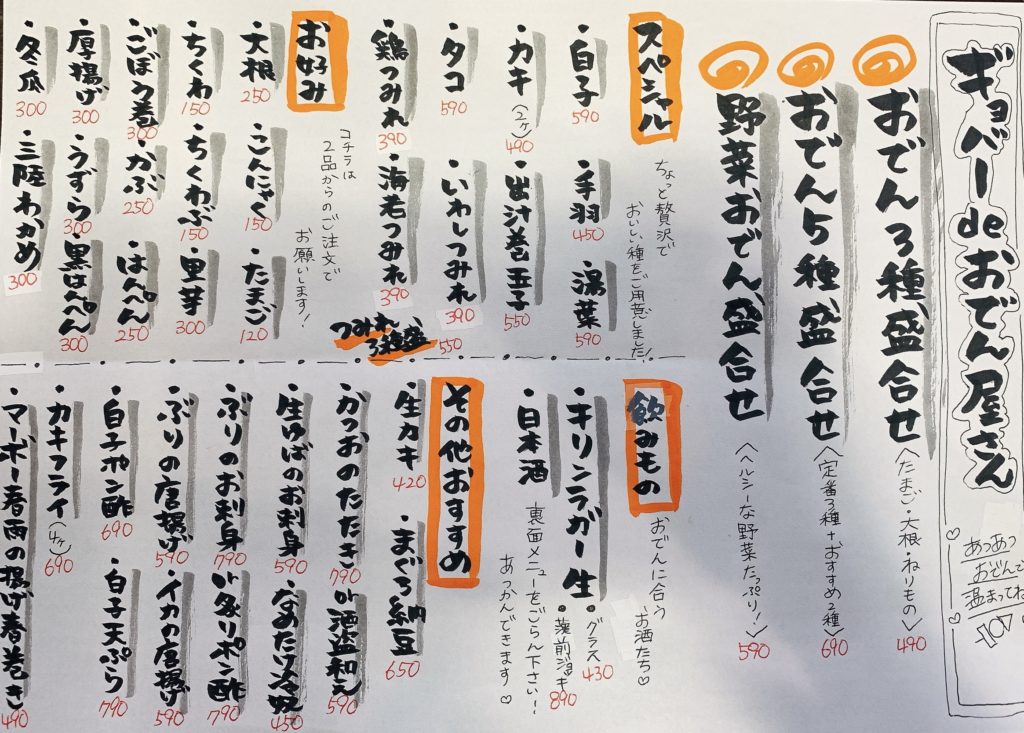 ギョバーdeおでん屋さん
あつあつ
おでんで
温まってね
HOT
おでん3種盛合せ〈たまご・大根・ねりもの〉490
おでん5種盛合せ〈定番3種+おすすめ2種〉690
野菜おでん盛合せ〈ヘルシーな野菜たっぷり!〉590
スペシャル
ちょっと贅沢で
おいしい種をご用意しました!
・白子 590
・手羽 450
・湯葉 590
・カキ(2ケ)490
・出汁巻玉子 550
・タコ 590
・いわしつみれ 390
・鶏つみれ 390
・海老つみれ 390
つみれ3種盛 550
お好み
コチラは
2品からのご注文で
お願いします!
・大根 250
・こんにゃく 150
・たまご 120
・ちくわ 150
・ちくわぶ 150
・里芋 300
・ごぼう巻 300
・かぶ 250
・はんぺん 250
・厚揚げ 300
・うずら 300
・黒はんぺん 300
・冬瓜 300
・三陸わかめ 300
飲みもの
おでんに合う
お酒たち♡
・キリンラガー生
・グラス 430
・薩前ジョッキ 890
・日本酒
裏面メニューをごらん下さい!
あつかんできます♡
その他おすすめ
・生カキ 420
・まぐろ納豆 650
・かつおのたたき 790
・〃酒盗和え 590
・生ゆばのお刺身 590
・なめたけ冷奴 450
・ぶりのお刺身 790
・〃炙りポン酢 790
・ぶりの唐揚げ 590
・イカの唐揚げ 590
・白子ポン酢 690
・白子天ぷら 790
・カキフライ(4ケ)690
・マーボー春雨の揚げ春巻き 490